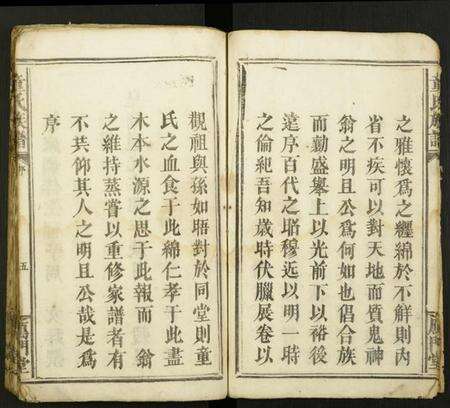 之雅懷爲之纒綿於不鮮則內
省不疚可以對天地而質鬼神
翁之明且公爲何如也倡合族
而勷盛舉上以光前下以裕後
遠序百代之昭穆近以明一時
之倫紀吾知歲時伏臘展卷以
觀祖與孫如晤對於同堂則童
氏之血食于此綿仁孝于此盡
木本水源之思于此報而 翁
之維持蒸嘗以重修家譜者有
不共仰其人之明且公哉是爲
序
童氏族譜
序
五
雁門堂
童氏族譜
雁門堂